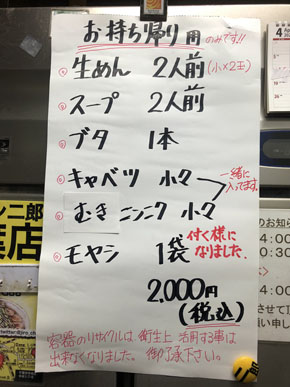 お持ち帰り用のみです!!
◦生めん 2人前(小×2玉)
◦スープ 2人前
◦ブタ 1本
◦キャベツ 小々
一緒に
入ってます。
◦むきニンニク 小々
◦モヤシ 1袋 付く様に
なりました。
2,000円
(税込)
容器のリサイクルは、衛生上 活用する事は
出来なくなりました。御了承下さい。
4
ン二郎
店
のお知ら
4:00
0:30